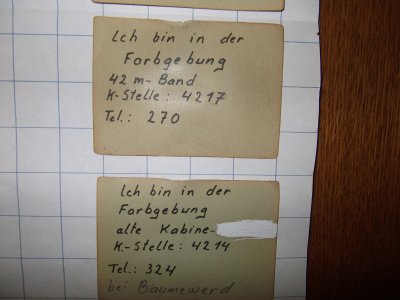 Ich bin in der
Farbgebung
42 m-Band
K-Stelle: 4217
Tel.: 270
Ich bin in der
Farbgebung
alte Kabine-
K.-Stelle: 4214
Tel.: 324
bei Baumewerd